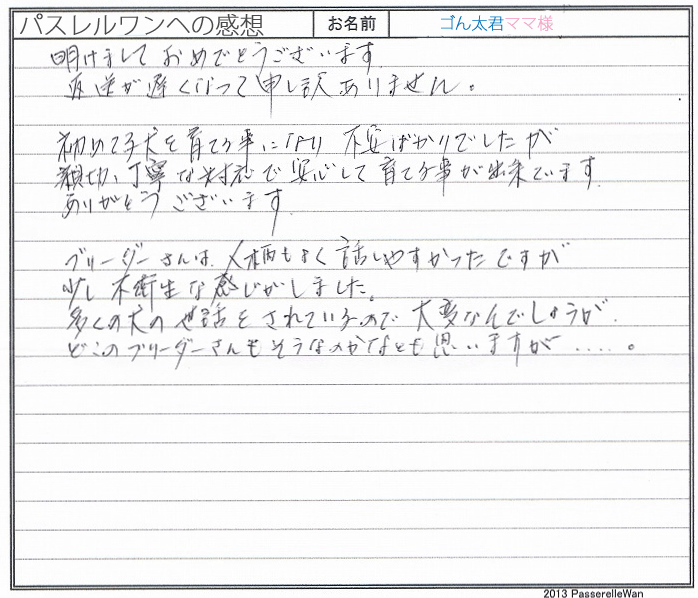 パスレルワンへの感想 お名前 ゴん太君ママ様
明けまして おめでとうございます。
返送が遅くなって申し訳ありません。
初めて子犬を育てる事になり 不安ばかりでしたが
親切、丁寧な対応で安心して育てる事が出来ています。
ありがとうございます。
ブリーダーさんは、人柄もよく話しやすかったですが
少し不衛生な感じがしました。
多くの犬の世話をされているので大変なんでしょうが、
どこのブリーダーさんもそうなのかなとも思いますが‥‥‥。
2013 PasserelleWan